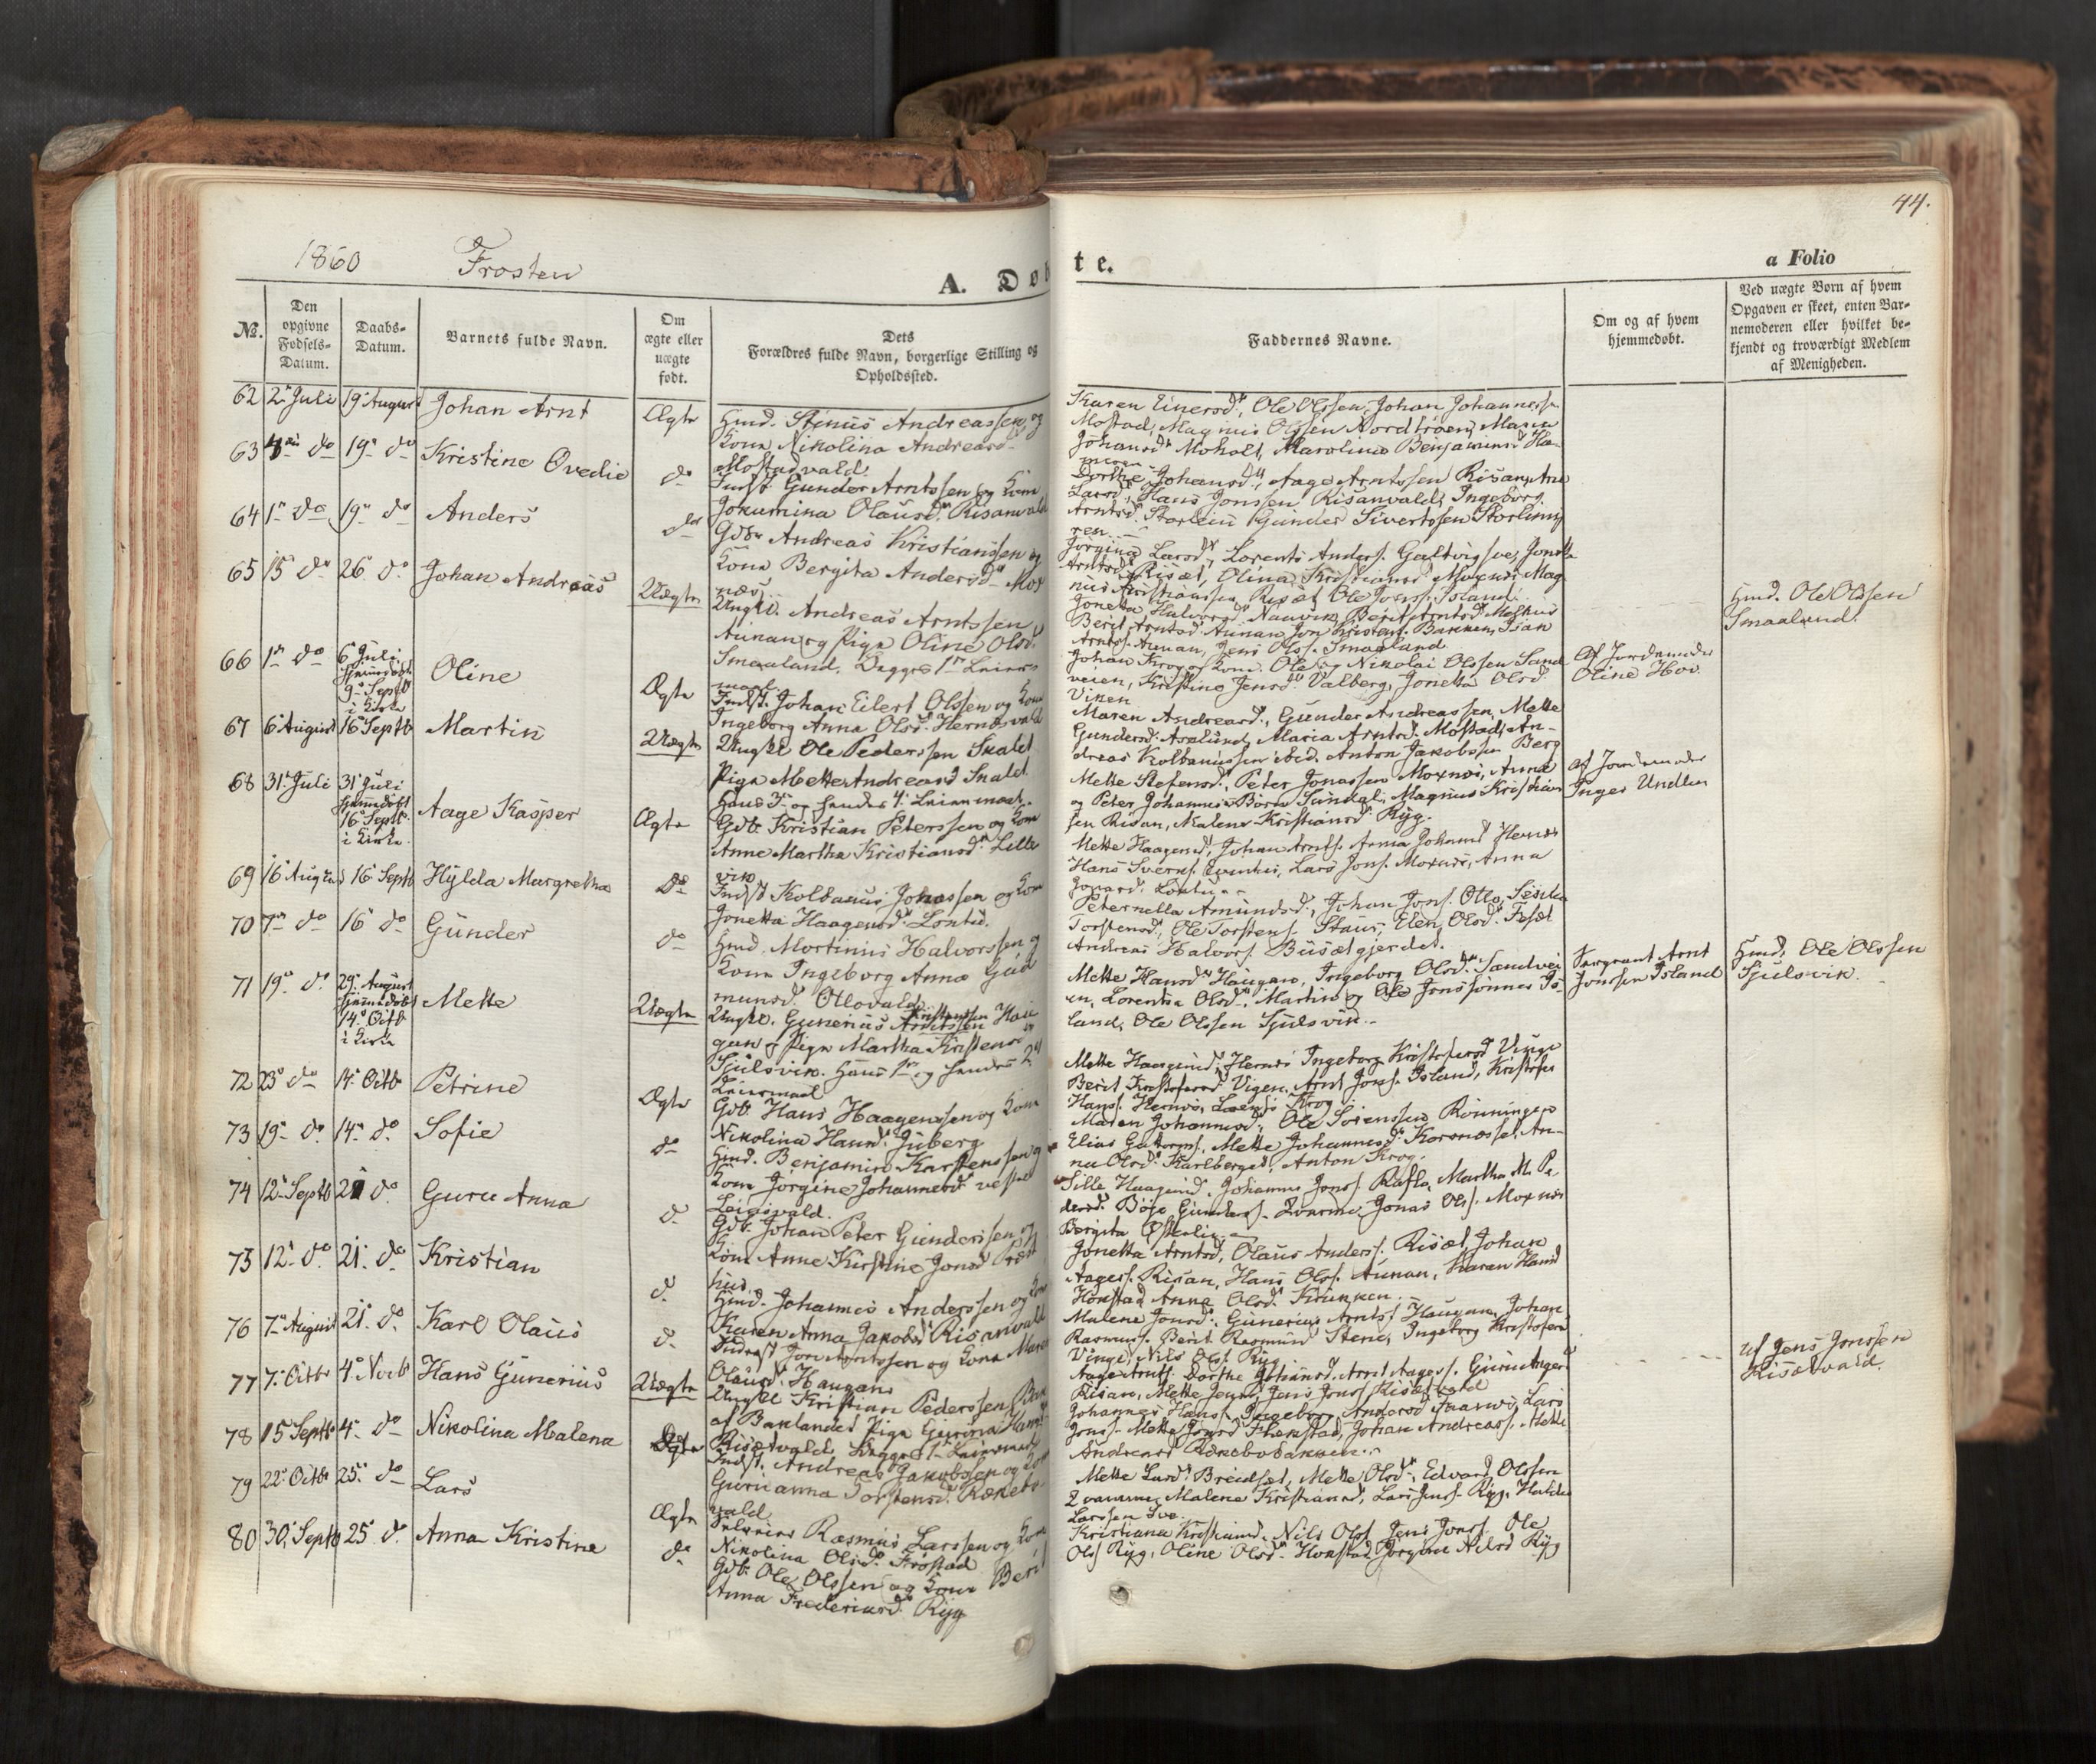 44.
1860 Frosten
A. Døbte.
a Folio
No.
Den opgivne Fødsels-Datum.
Daabs-Datum.
Barnets fulde Navn.
Om ægte eller uægte født.
Dets Forældres fulde Navn, borgerlige Stilling og Opholdssted.
Faddernes Navne.
Om og af hvem hjemmedøbt.
Ved uægte Børn af hvem Opgaven er skeet, enten Barnemoderen eller hvilket bekjendt og troværdigt Medlem af Menigheden.
62 2den Juli 19de August Johan Arnt Ægte
Hmd. Stinus Andreassen og
Kone Nikolina Andreasd.
Mostadvald
Karen Einersd., Ole Olssen, Johan Johannessen
Mostad, Magnus Olssen Nordtrøen, Maren
Johansd. Moholt, Karolina Benjaminsd.
63 do 19 do Kristine Ovedie do
Indst. Gunder Arntssen og Kone
Jokumina Olausd. Risanvald
Dorthe Johansd., Aage Arntssen Risan, Ane
Larsd., Hans Jonssen Risanvald, Ingeborg
Arntsd. Storlein, Gunder Sivertssen Storlimyren
64 1 do 19 do Anders do
Gdbr Andreas Kristianssen og
Kone Bergita Andersd. Moxnæs
Jørgina Larsd., Lorents Anders. Galtvigsve, Jonetta
Arntsd. Risæt, Olina Kristiansd. Moxnæs, Magnus Kristianssen Risæt, Ole Jonss. Island.
65 15 do 26 do Johan Andreas Uægte
Ungkl. Andreas Arntssen
Aunan og Pige Oline Olsd.
Smaaland. Begges 1ste Leiermaal
Jonetta Halvorsd. Nauvik, Berit Arntsd.
Berit Arntsd. Aunan, Jon Kristens. Bakken, Isak
Arnts. Aunan, Jens Olss. Smaaland
Hmd. Ole Olssen
Smaaland.
66 1 do 6 Juli hjemmedøbt 9 Septb i Kirke Oline Ægte
Indst. Johan Eilert Olssen og Kone
Ingeborg Anna Olsd. Hernesvald
Johan Krog og Kone, Ole og Nikolai Olssen Sandveien, Kristine Jensd. Valberg, Jonetta Olsd.
Viken
Af Jordemoder
Oline Hov.
67 6 August 16 Septb Martin Uægte
Ungkl Ole Pederssen Skalet
Pige Mette Andreasd Skalet
Hans 3 og hendes 4 Leiermaal.
Maren Andreasd., Gunder Andreassen, Mette
Gundersd. Aaslund, Maria Arntsd. Mostad, Andreas Kolbanussen ibid. Anton Jakobssen Berg
68 31 Juli 31 Juli hjemmedøbt 16 Septb. i Kirke Aage Kasper Ægte
Gdb. Kristian Peterssen og Kone
Anne Martha Kristiansd. Lillevik
Mette Stefensd., Peter Jonassen Moxnæs, Anna
og Peter Johannes Børsve Sundal, Magnus Kristianssen Risan, Malena Kristiansd. Ryg.
af Jordemoder
Inger Undlien
69 16 August 16 Septb Hylda Margretha Do
Indst Kolbanus Johnssen og Kone
Jonetta Haagensd. Lontu.
Mette Haagensd., Johan Arnts. Anna Johansd Hernes
Hans Sverss. Lars Jons. Moxnæs, Anna
Jonasd. Lontu
70 7 do 16 do Gunder do
Hmd. Martinus Halvorssen og
Kone Ingeborg Anna Gudmunsd. Otlovald
Peternella Amundsd., Johan Jons. Otlo,
Torstensd., Ole Torstens. Staur, Elen Olsd. Fosset
Andreas Halvors. Busætgjerdet.
71 19 do 29 August hjemmedøbt 14 Octb i Kirke Mette Uægte
Ungkl. Gunerius Kristenssen Haugan og Pige Martha Kristensd
Sjulsvik. Hans 1ste og hendes 2d
Leiermaal
Mette Hansd. Haugan, Ingeborg Olsd. Sandveien, Lorentsa Olsd., Martin og Ole Jonssønner Island, Ole Olssen Sjulsvik.
Sergeant Arnt
Jonssen Island
Hmd. Ole Olssen
Sjulsvik.
72 23 do 14 Octb Petrine Ægte
Gdb. Hans Haagenssen og Kone
Nikolina Hansd. Juberg
Mette Haagensd, Hernes, Ingeborg Kristofersd Vinge
Berit Kristofersd Vigen, Arnt Jons. Island, Kristofer
Hans. Hernes, Krog
73 19 do 14 do Sofie do
Hmd. Benjamin Karstenssen og
Kone Jørgine Johannesd vestre
Leirosvald.
Maren Johannesd., Ole Sørenssen Rønningen
Elias Guttorms. Mette Johannesd. Korsnæsset, Anna Olsd. Karlberget, Anton Krog.
74 12 Septb 21 do Guru Anna do
Gdb. Johan Peter Gunderssen og
Kone Anne Kirstine Jonsd Præsthus.
Sille Haagensd., Johannes Jons. Rafla, Martha M. Pedersd. Jonas Ols. Moxnæs
Bergita
75 12 do 21 do Kristian do
Hmd. Johannes Anderssen og Kone
Karen Anna Jakobsd Risanvald
Jonetta Arntsd, Olaus Anderss. Risæt, Johan
Aagess. Risan, Hans Olss. Aunan, Karen Hansd
Honstad, Anna Olsd.
76 7 August 21 do Karl Olaus do
Jon Arntssen og Kone Maren
Olausd. Haugan
Malene Jonsd., Gunerius Arnts. Haugan, Johan
Rasmus. Berit Rasmusd Stene, Ingeborg Kristofersd
Vinge, Nils Olss. Ryg
77 7 Octb 4 Novb Hans Gunerius Uægte
Ungkl Kristian Pederssen
af Baklandet Pige Gurina Hansd
Risætvald. Begges 1 Leiermaal
Aage Arnts. Dorthe Johansd. Arnt Aages. Guru
Risan, Mette Jensd, Jens Jons. Risætvald
af Jens Jonssen
Risætvald.
78 15 Septb 4 do Nikolina Malena Ægte
Indst. Andreas Jakobssen og Kone
Guruanna Torstensd. vald
Johannes Hans. Ingeborg Andersd Lars
Jons. Mette Jonsd Johan Andreas. Mette
Andreasd
79 22 Octb 25 do Lars Ægte
Rasmus Larssen og Kone
Nikolina Olsd. Frostad
Mette Larsd. Breidset, Mette Olsd., Edvard Olssen
Malena Kristiansd, Lars Jens. Ryg, Haldo
Larssen Sve.
80 30 Septb 25 do Anna Kristine do
Gdb. Ole Olssen og Kone Berit
Anna Frederiksd. Ryg
Kristiana Kristiansd. Nils Olss Jens Jons. Ole
Ols Ryg, Oline Olsd. Honstad, Jørgine Nilsd Ryg